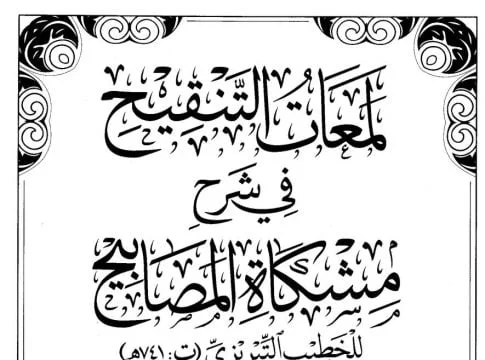 لمعات التنقيح
في شرح
مشكاة المصابيح
للخطيب التبريزي (ت: ٧٤١هـ)